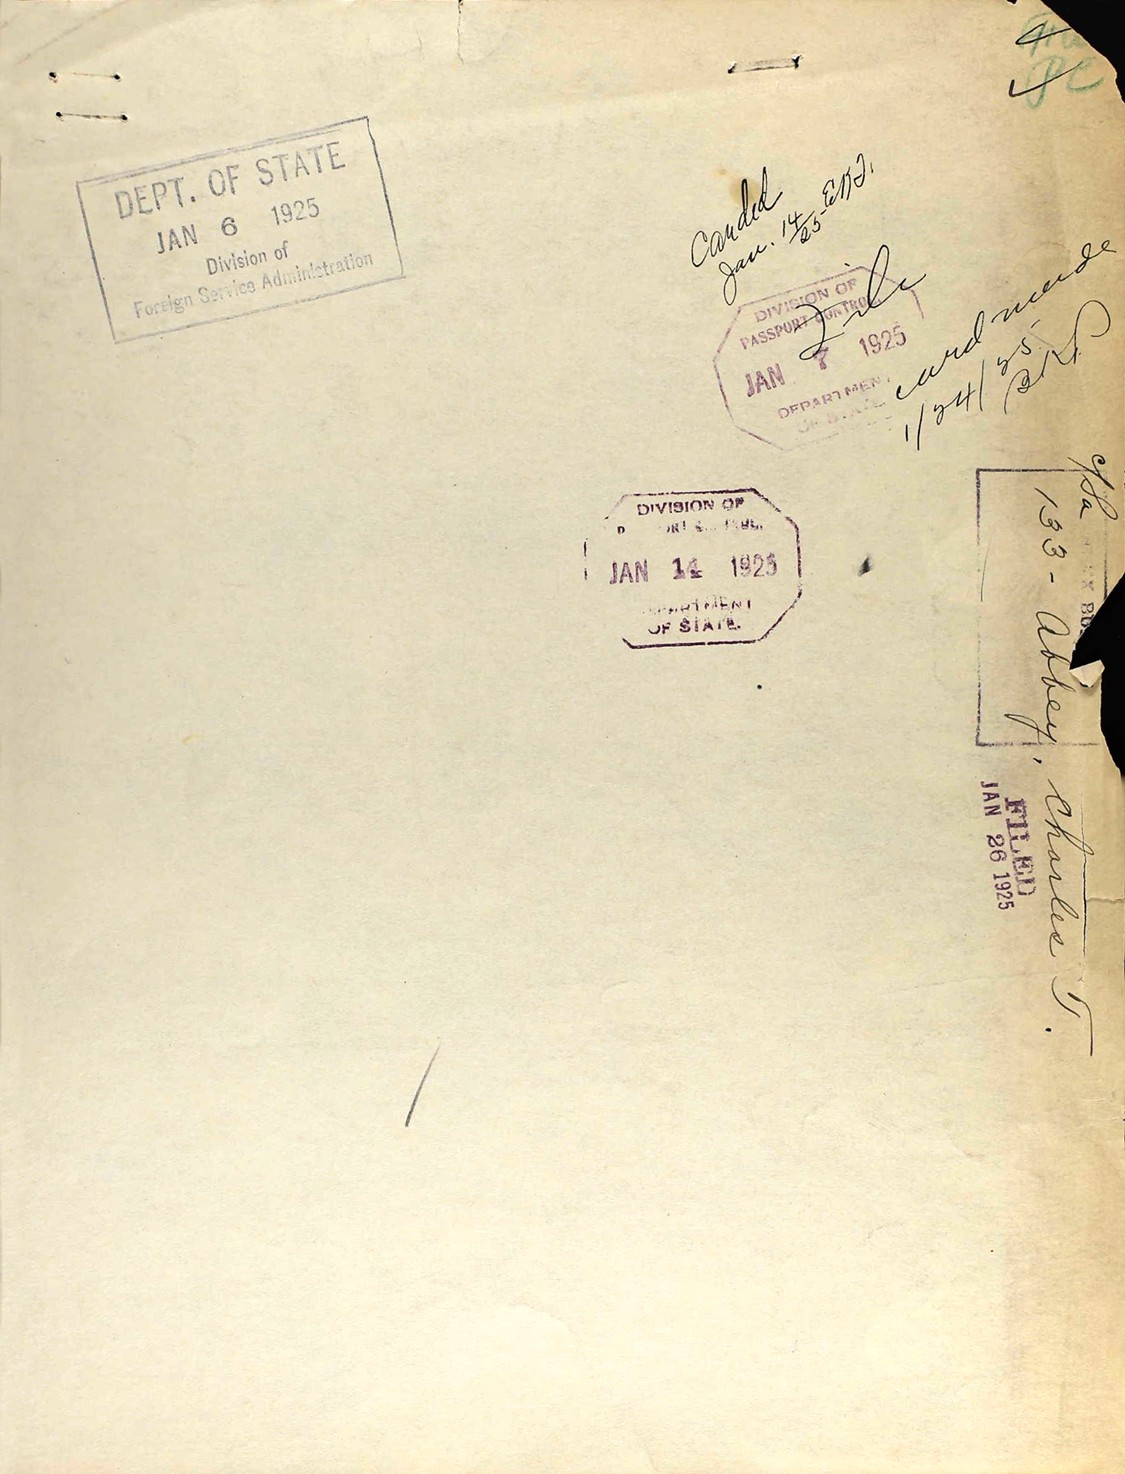 PC
DEPT. OF STATE
JAN 6 1925
Division of
Foreign Service Administration
Carded
Jan. 14/25-
File
DIVISION OF
PASSPORT CONTROL
JAN 7 1925
DEPARTMENT
OF STATE
card made
1/24/25
DIVISION OF
JAN 14 1925
DEPARTMENT
OF STATE.
133 - Abbey, Charles T.
FILED
JAN 26 1925